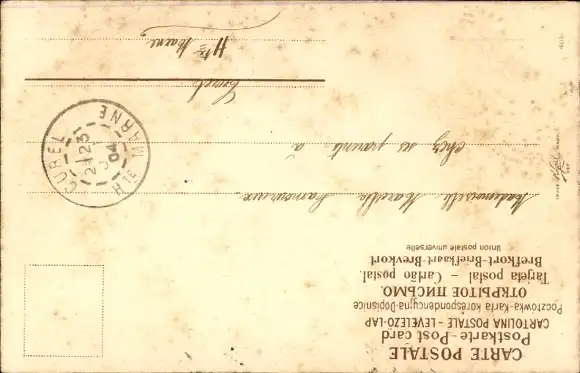 CARTE POSTALE
Postkarte - Post card
CARTOLINA POSTALE - LEVELEZŐ-LAP
Pocztówka-Karta korespondencyjna-Dopisnice
ОТКРЫТОЕ ПИСЬМО.
Tarjeta postal - Cartão postal.
Brefkort-Briefkaart-Brevkort
Union postale universelle
Mademoiselle Marcelle Lamoureux
chez ses parents à
Curel
Hte Marne
CUREL
23
04
Hte MARNE
TRADE MARK